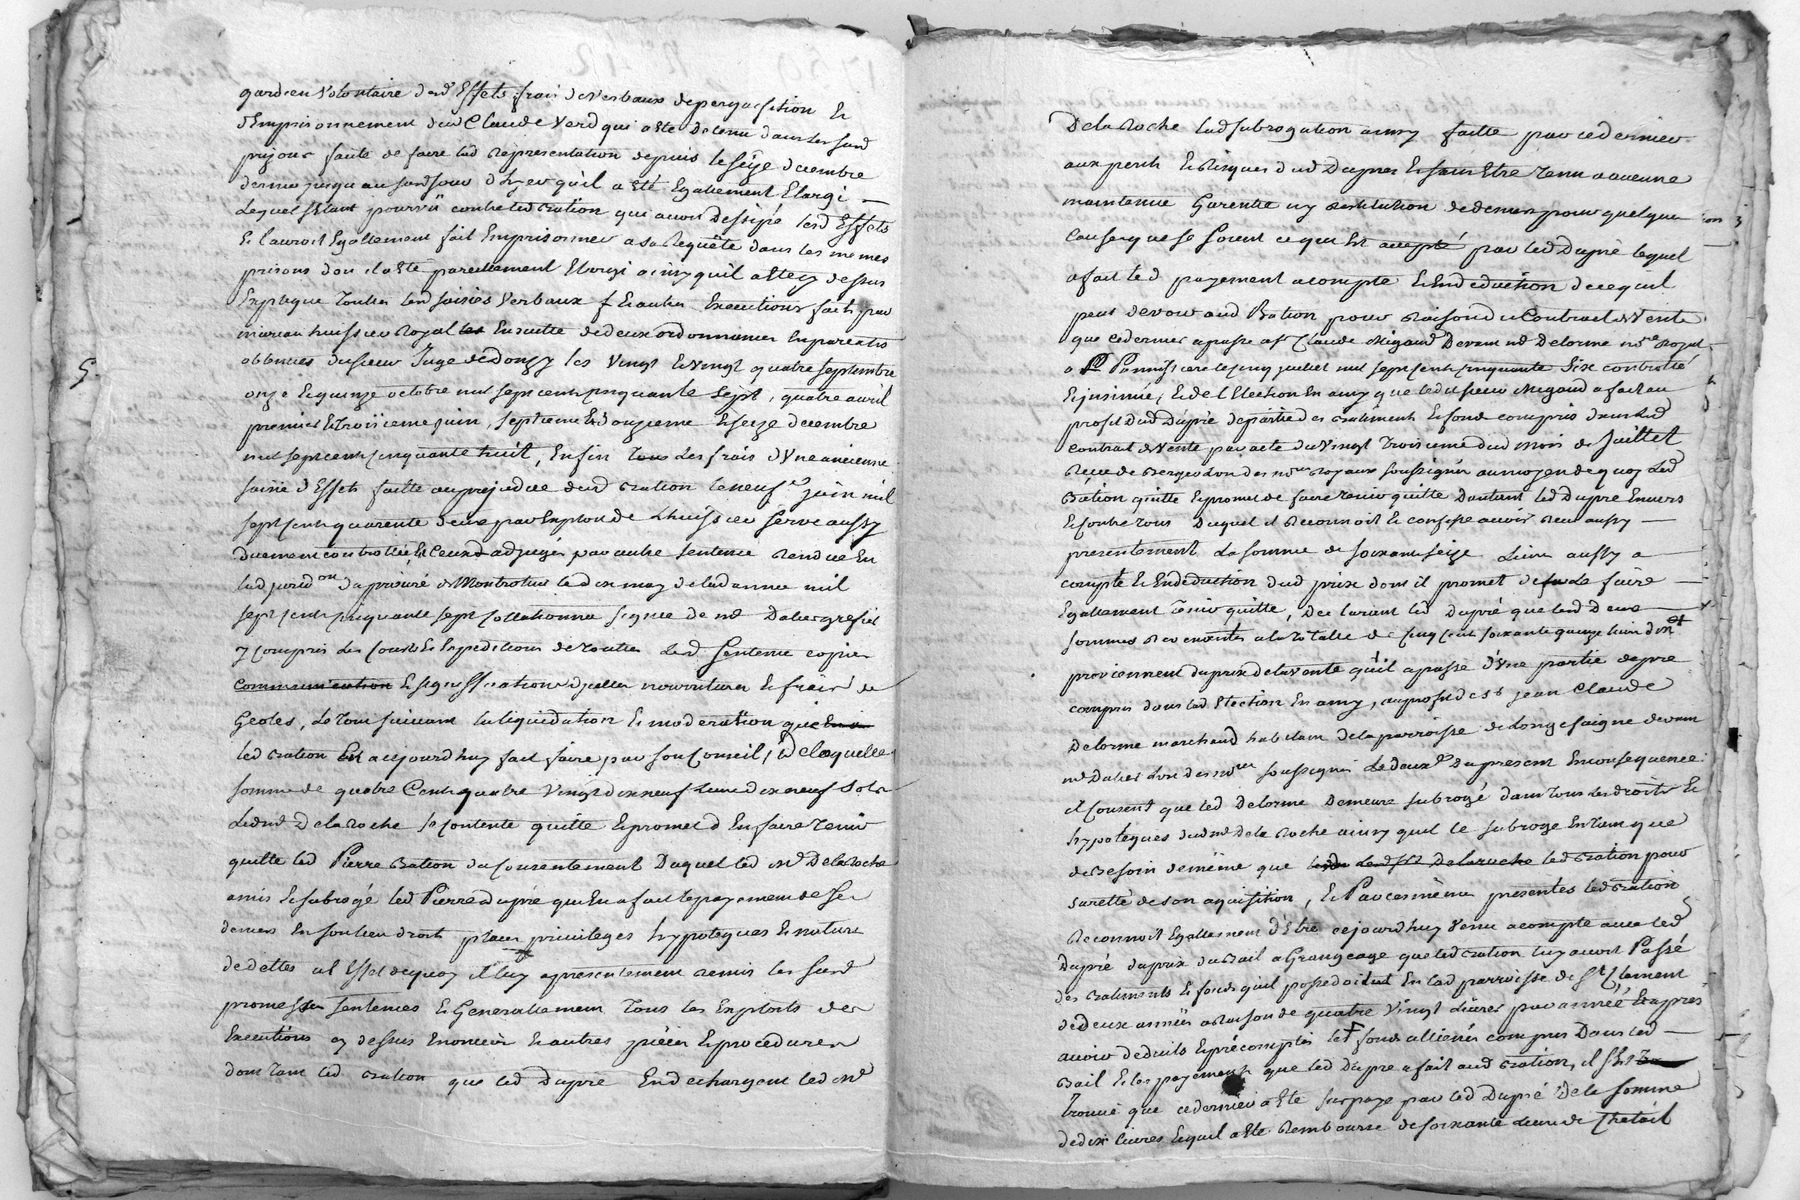 gardien volontaire desd Effets frais de verbaux de perquisition Et
d'Emprisonnement dud Claude Verd qui a Eté detenu dans les susd
prisons faute de faire lad representation depuis le seize decembre
dernier jusqu au susd jour d'hyer qu'il a Eté Egallement Elargi
Lequel s'Etant pourvü contre led Bration qui avoit Dessipé lesd Effets
Et l'auroit Egallement fait Emprisonner a sa Requête dans les memes
prisons d'ou il a Eté pareillement Elargi ainsy qu'il a Eté cy dessus
Expliqué Toutes lesd saisies Verbaux Et autres Executions faits par
huissier Royal Ensuitte de deux ordonnances En parentis
obtenues du sieur Juge de donzy les Vingt Et vingt quatre septembre
onze Et quinze octobre mil sept cent cinquante sept, quatre avril
premier Et troisieme juin, septieme Et douzieme Et seize decembre
mil sept cent cinquante huit, Enfin Tous les frais d'Une ancienne
saisie d'Effets faitte au prejudice dud Bration le neuf juin mil
sept cent quarente deux par Exploit de L'huissier Serve aussy
Duement controllée, Et Ceux adjugés par autre sentence Rendue En
lad jurid.on du prieuré de Montrotier le dix may de lad année mil
sept cent cinquante sept collationnée signée de me Dalier grefier
y compris les Couts Et Expeditions de Toutes Lesd Sentences copies
communication Et significations d'icelles nourriture Et frais de
Geoles, Le tout suivant la liquidation Et moderation que
led Bration En aujourd'huy fait faire par son Conseil, De laquelle
somme de quatre Cents quatre Vingt dix neuf Livres dix neuf Sols
Led me Delaroche se contente quitte Et promet d'En faire Tenir
quitte led Pierre Bration du Consentement Duquel led me Delaroche
a mis Et subrogé led Pierre dupré qui En a fait le payement de Ses
deniers En son lieu droit places privileges hypoteques Et nature
de dettes a l'Effet de quoy il luy a presentement remis les susd
promesses sentences Et Generallement Tous les Exploits des
Executions cy dessus Enoncées Et autres pieces Et procedures
dont Tant led Bration que led Dupré En dechargent led me
5
Delaroche lad subrogation ainsy faitte par ce dernier
aux perils Et Risques dud Dupré Et sans Etre Tenu a aucune
maintenue Garentie ny Restitution de deniers pour quelque
Cause que se soient ce qui Est accepté par led Dupré lequel
a fait led payement a compte Et En deduction de ce quil
peut devoir aud Bration pour Raison du Contract de Vente
que ce dernier a passé a sr Claude Migaud Devant me Delorme nore Royal
a Pannissiere le cinq juillet mil sept cent cinquante Six controllé
Et jnsinué, Et de l'Election En amy que led sieur Migaud a fait au
profit dud Dupré de partie des Batiments Et fonds compris dans led
contract de Vente par acte du Vingt Troisieme dud mois de Juillet
Reçue de Bergeron l'un des nores Royaux soussignés au moyen de quoy led
Bration quitte Et promet de faire Tenir quitte D'autant led Dupré Envers
Et contre Tous Duquel il Reconnoit Et confesse avoir Reçu aussy
presentement La somme de soixante seize Livres aussy a
compte Et En deduction dud prix dont il promet de le faire
Egallement Tenir quitte, Declarant led Dupré que lesd deux
sommes Revenantes a la Totalle de Cinq cent soixante quinze livres dix neuf
proviennent du prix de la vente qu'il a passé d'Une partie de ce
compris dans lad Election En amy, au profit de sr jean Claude
Delorme marchand habitant de la parroisse de Longesaigne devant
me Dalier L'un des nores soussignés Le douze du present En consequence
il consent que led Delorme Demeure subrogé dans tous les droits Et
hypoteques dud me Dela Roche ainsy quil le subroge En Tant que
de Besoin de même que led Bration pour
sureté de son aquisition, Et Par ces mêmes presentes led Bration
Reconnoit Egallement d'Etre ce jourd'huy Venu a compte avec led
Dupré du prix du Bail a Grangeage que led Bration luy avoit Passé
des Batiments Et fonds qu'il possedoit En lad parroisse de St Clement
de deux années a Raison de quatre Vingt Livres par année Et apres
avoir deduits Et précomptés les fonds alliénés compris Dans led
Bail Et les payements que led Dupré a fait aud Bration, il s'Est
trouvé que ce dernier a Eté surpayé par led Dupré De la somme
de dix livres Lequel a Eté Remboursé de soixante Livres de Chetail